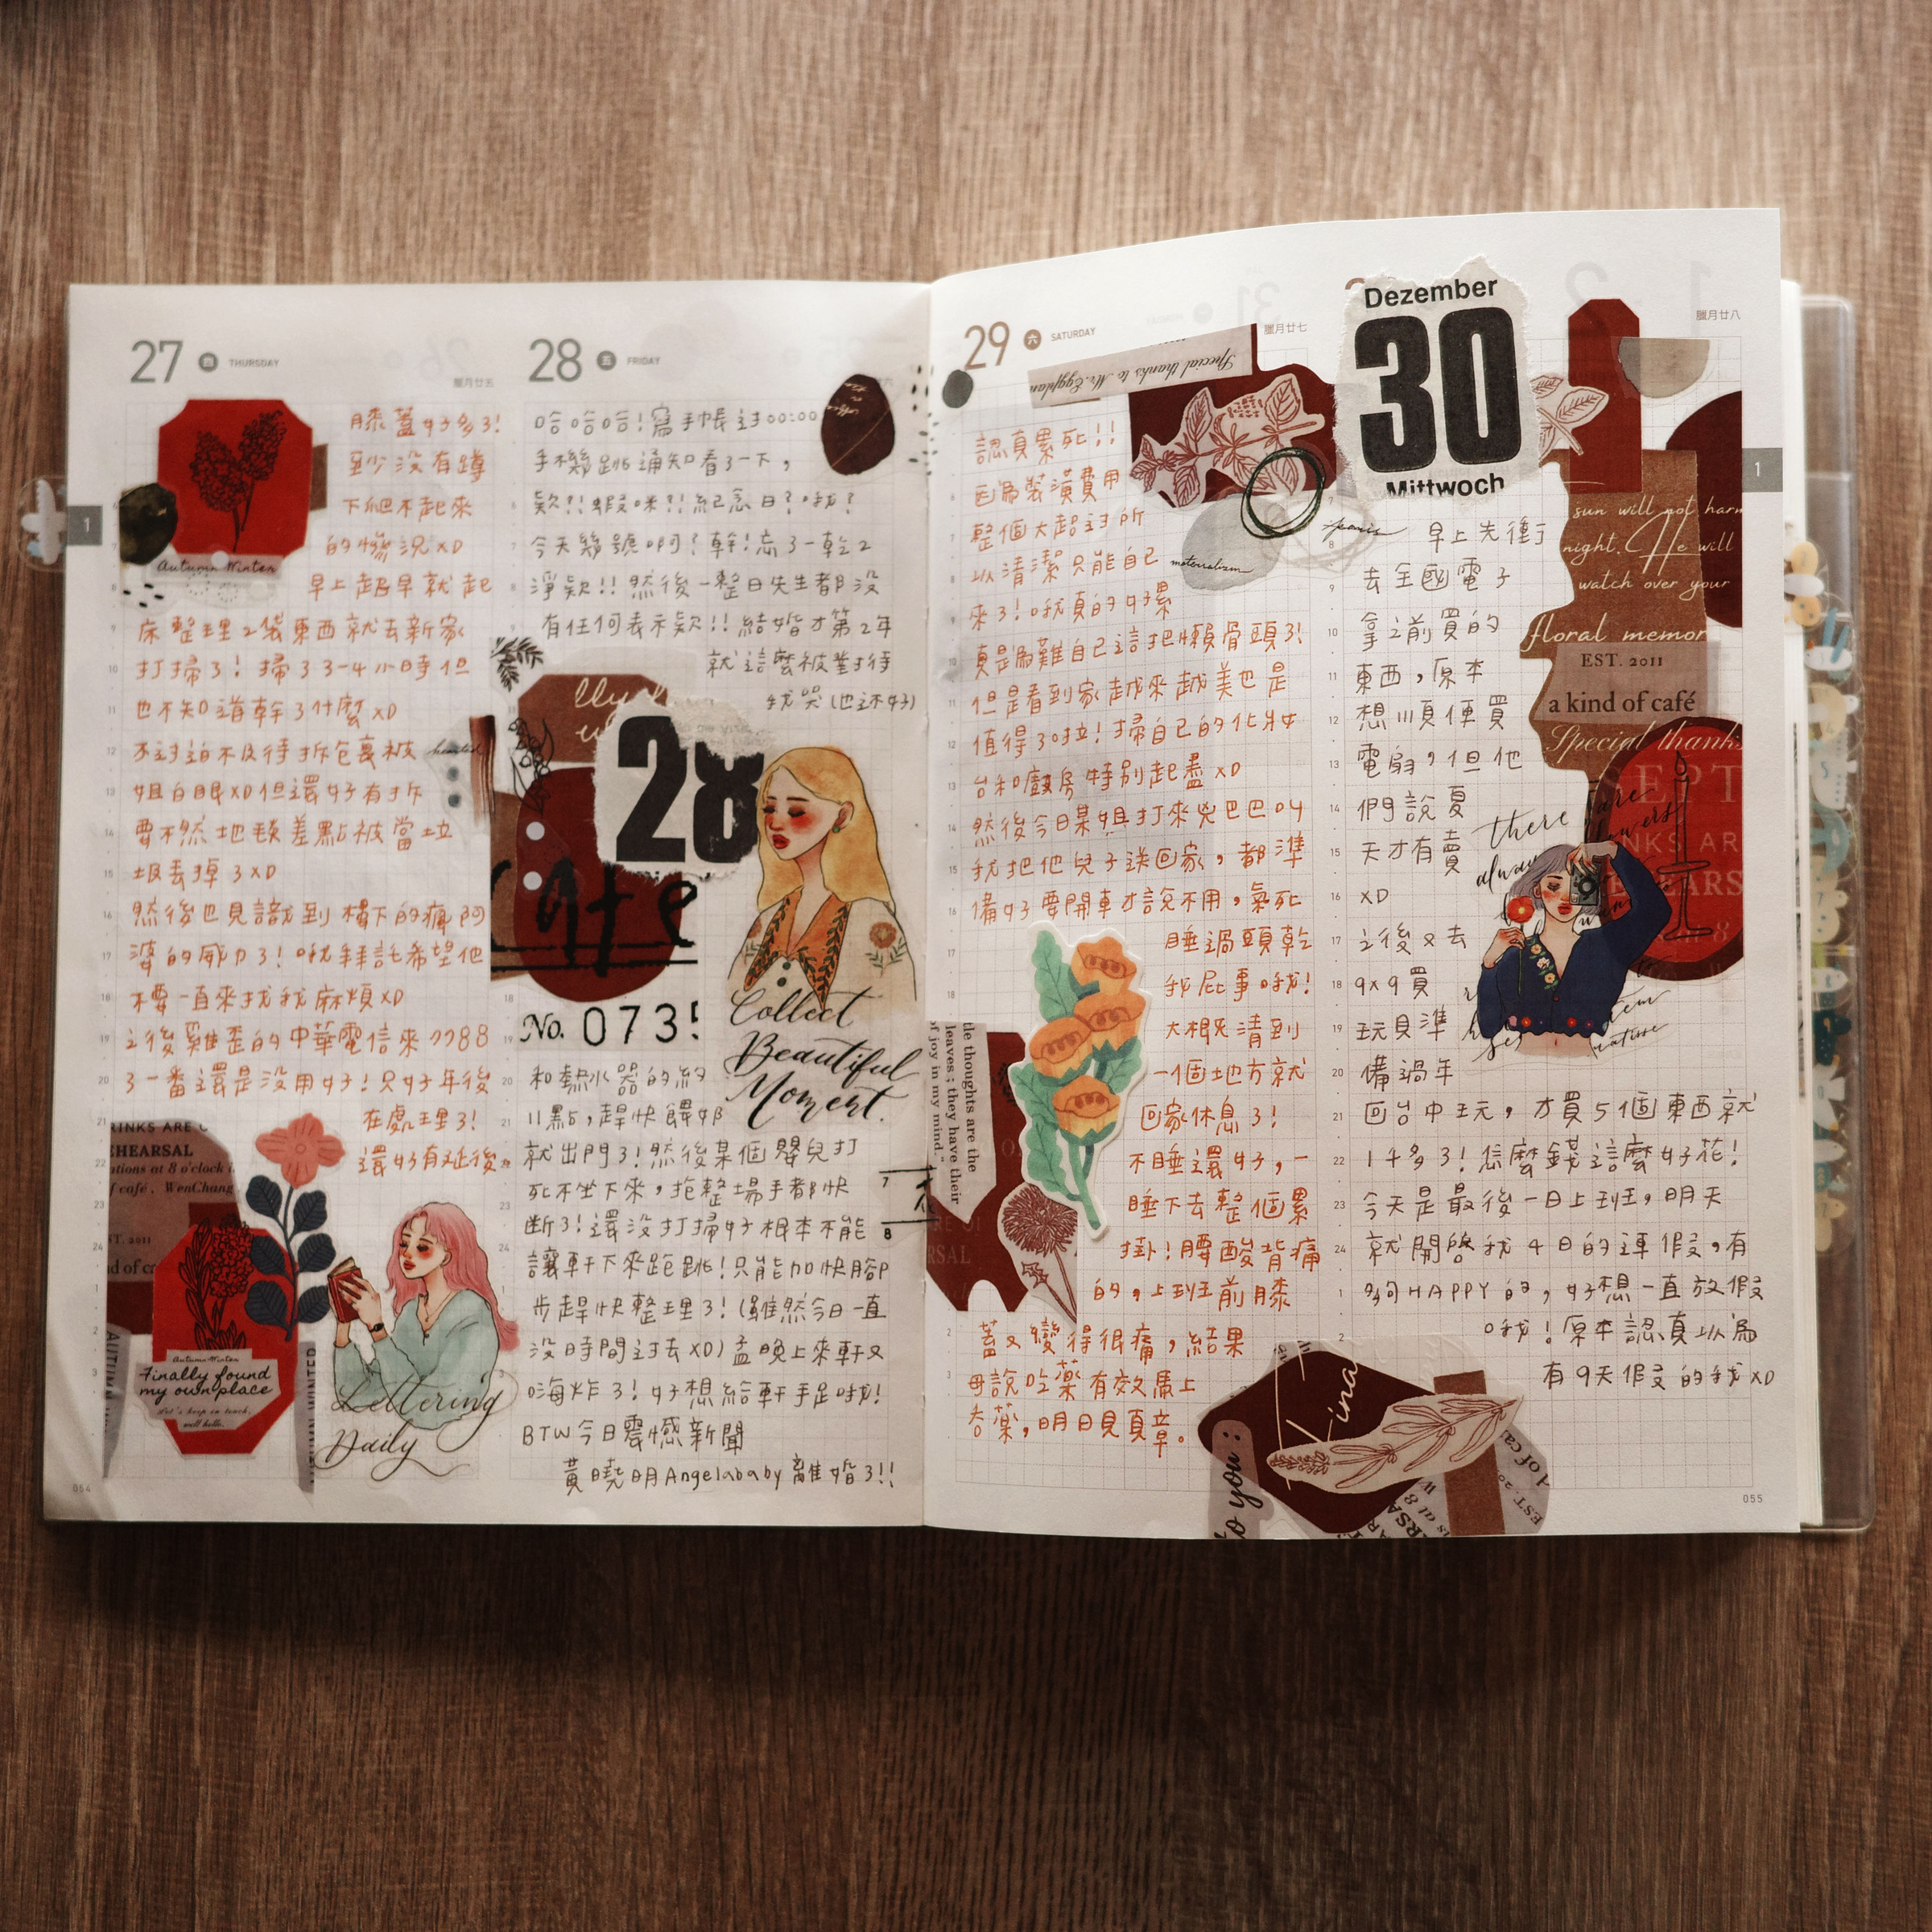 27 四 THURSDAY
臘月廿五
膝蓋好多了!
至少沒有蹲
下爬不起來
的慘況XD
Autumn Winter
早上超早就起
床整理2袋東西就去新家
打掃了! 掃了3-4小時但
也不知道幹了什麼XD
不過迫不及待拆包裹被
姐白眼XD但還好有拆
要不然地毯差點被當垃
圾丟掉了XD
然後也見識到樓下的瘋阿
婆的威力了! 哦拜託希望他
不要一直來找我麻煩XD
之後雞歪的中華電信來ㄅㄅ88
了一番還是沒用好! 只好年後
在處理了!
還好有延後
RINKS ARE
EHEARSAL
ations at 8 o'clock i
f café . WenChang
EST. 2011
nd of ca
Autumn Winter
Finally found
my own place
Let's keep in touch,
well hello.
AUTUMN WINTER
Lettering
Daily
054
28 五 FRIDAY
哈哈哈! 寫手帳過00:00
手機跳通知看了一下,
欸?! 蝦咪?! 紀念日? 哦?
今天幾號啊? 幹! 忘了一乾2
淨欸!! 然後一整日先生都沒
有任何表示欸!! 結婚才第2年
就這麼被對待
我哭(也還好)
28
No. 073
Collect
Beautiful
Moment.
和熱水器的約
11點, 趕快餵奶
就出門了! 然後某個嬰兒打
死不坐下來, 抱整場手都快
斷了! 還沒打掃好根本不能
讓軒下來跑跳! 只能加快腳
步趕快整理了! (雖然今日一直
沒時間過去XD) 孟晚上來軒又
嗨炸了! 好想給軒手足哦!
BTW 今日震憾新聞
黃曉明Angelababy 離婚了!!
29 六 SATURDAY
臘月廿七
Special thanks to Mr. Eggplan
認真累死!!
因為裝潢費用
整個大超過所
以清潔只能自己
來了! 哦真的好累
materialism
真是為難自己這把懶骨頭了!
但是看到家越來越美也是
值得了啦! 掃自己的化妝
台和廚房特別起盡XD
然後今日某姐打來兇巴巴叫
我把他兒子送回家, 都準
備好要開車才說不用, 氣死
睡過頭乾
我屁事哦!
大概清到
一個地方就
回家休息了!
不睡還好, 一
睡下去整個累
掛! 腰酸背痛
的, 上班前膝
蓋又變得很痛, 結果
母說吃藥有效馬上
吞藥, 明日見真章。
de thoughts are the
leaves ; they have their
f joy in my mind."
Lina
to you :
Dezember
30
Mittwoch
臘月廿八
早上先衝
去全國電子
拿之前買的
東西, 原本
想順便買
電扇, 但他
們說夏
天才有賣
XD
之後又去
9x9買
玩具準
備過年
回台中玩, 才買5個東西就
1千多了! 怎麼錢這麼好花!
今天是最後一日上班, 明天
就開啓我4日的連假, 有
多向HAPPY的, 好想一直放假
哦! 原本認真以為
有9天假的我XD
sun will not harm
night. He will
watch over your
floral memor
EST. 2011
a kind of café
Special thanks
SEPT
INKS AR
EARS
there are
flowers
always
055